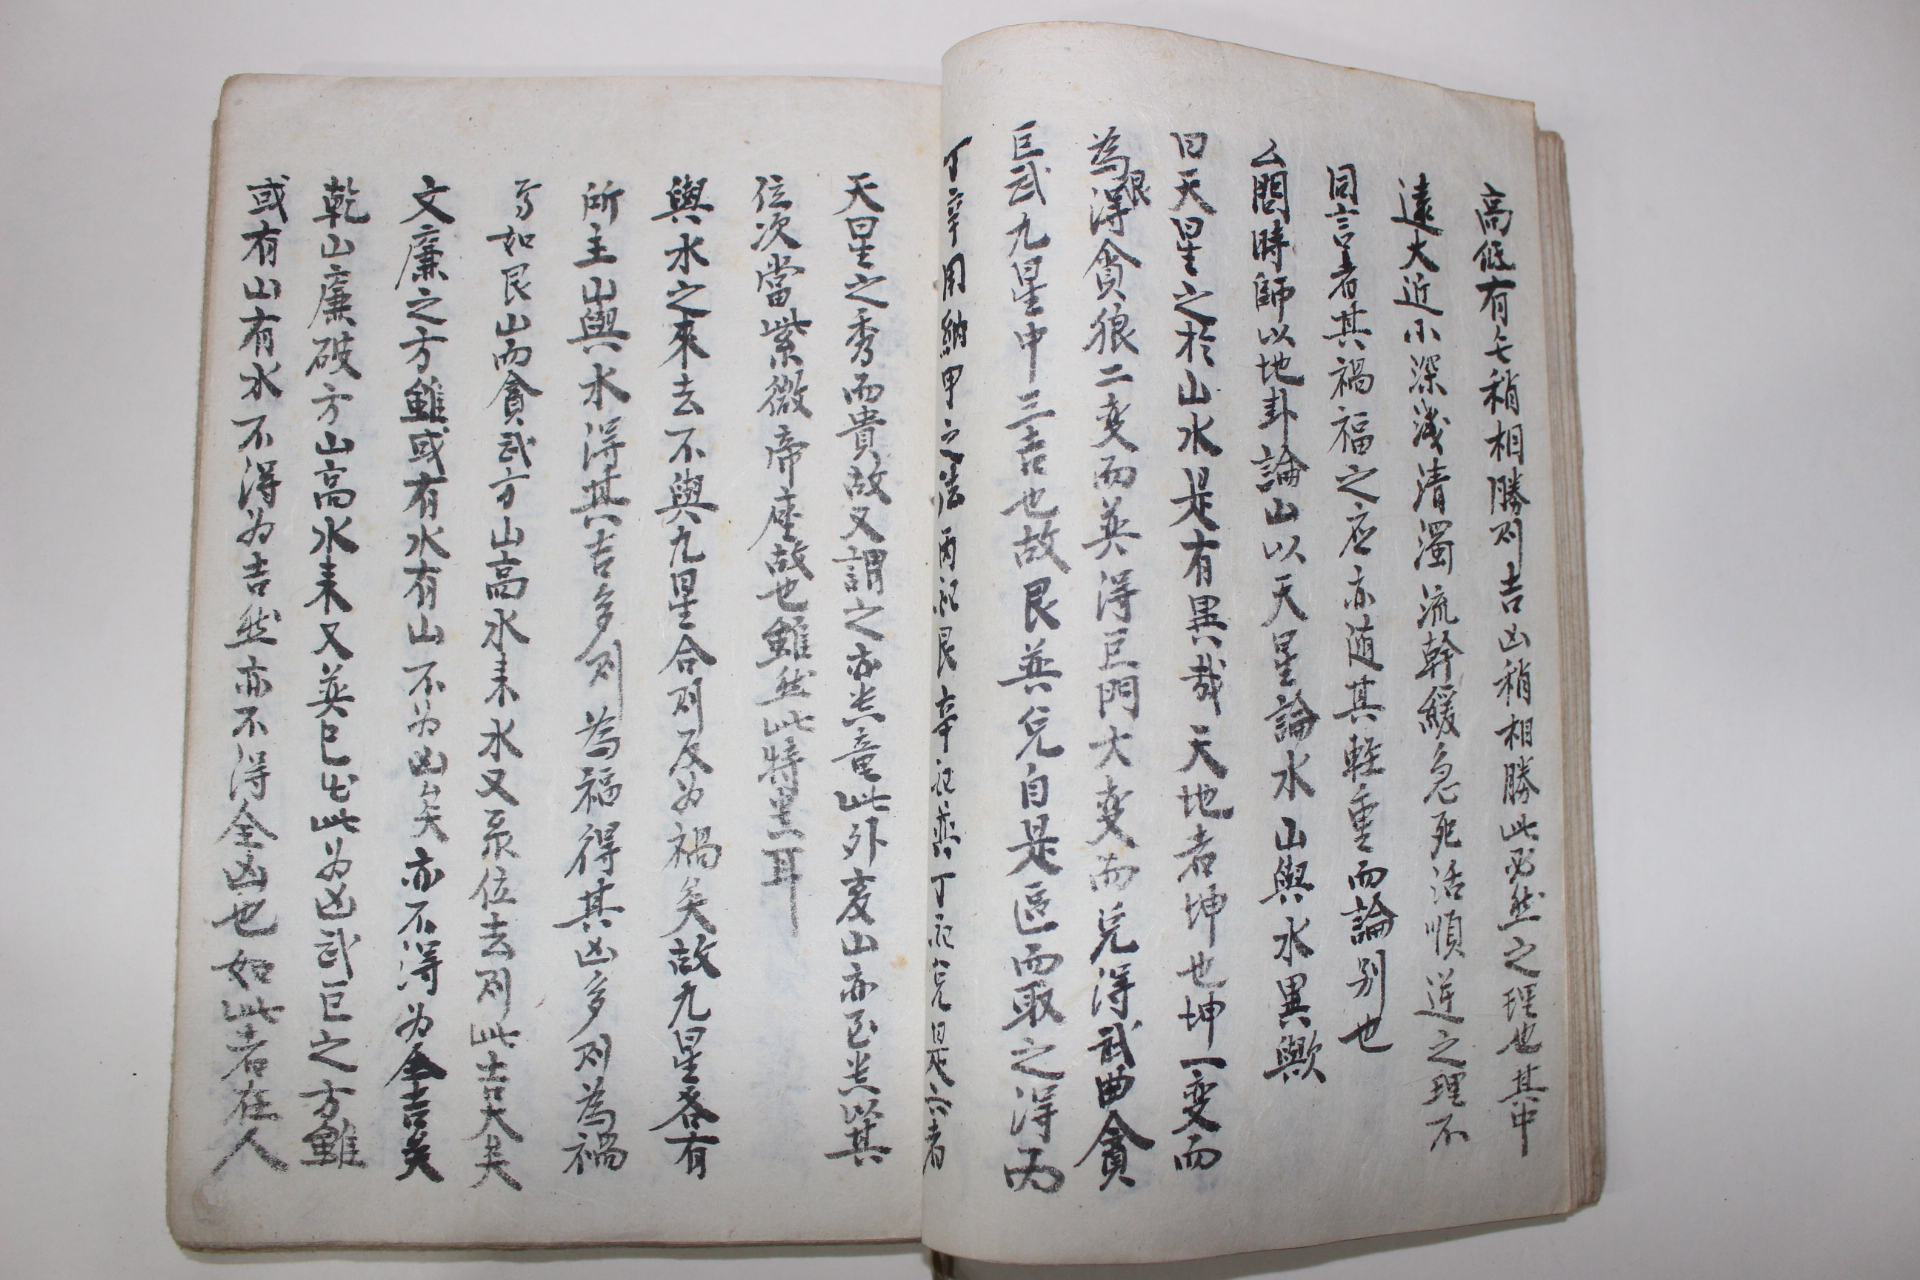 高低有○稍相勝則吉凶稍相勝此必然之理也其中
遠大近小深浅清濁流幹緩急死活順逆之理不
同言者其禍福之应亦随其軽重而論別也
厶問時師以地卦論山以天星論水山與水異歟
曰天星之於山水是有異哉天地者坤也坤一变而
為艮得貪狼二变而巽得巨門大变而兌得武曲貪
巨武九星中三吉也故艮巽兌自是區而取之得丙
丁辛用納甲之法丙祀艮辛祀巽丁祀兌是六者
天星之秀而貴故又謂之亦吉竜此外亥山亦吉以其
位次當紫微帝座故也雖然此特星耳
與水之来去不與九星合則反为禍矣故九星各有
所主山與水得其吉多則為福得其凶多則為禍
如艮山而貪武方山高水来水又位去則此吉大矣
文廉之方雖或有水有山不为凶矣亦不得为全吉矣
乾山廉破方山高水来又巽巳此为凶武巨之方雖
或有山有水不得为吉然亦不得全凶也如此者在人